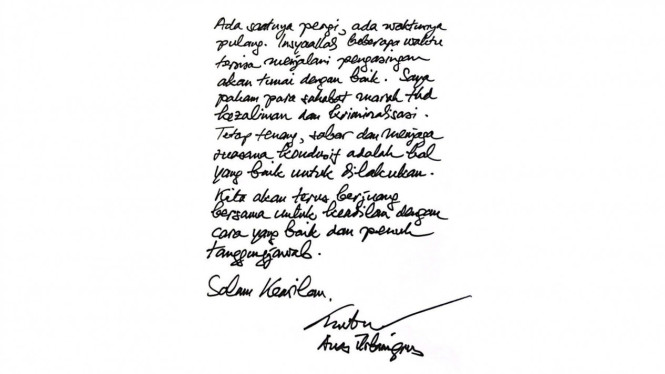 Ada saatnya pergi, ada waktunya
pulang. Insyaallah beberapa waktu
tersisa menjalani pengasingan
akan tunai dengan baik. Saya
paham para sahabat marah thd
kezaliman dan kriminalisasi.
Tetap tenang, sabar dan menjaga
suasana kondusif adalah hal
yang baik untuk dilakukan.
Kita akan terus berjuang
bersama untuk keadilan dengan
cara yang baik dan penuh
tanggungjawab.
Salam Keadilan,
Anas Urbaningrum